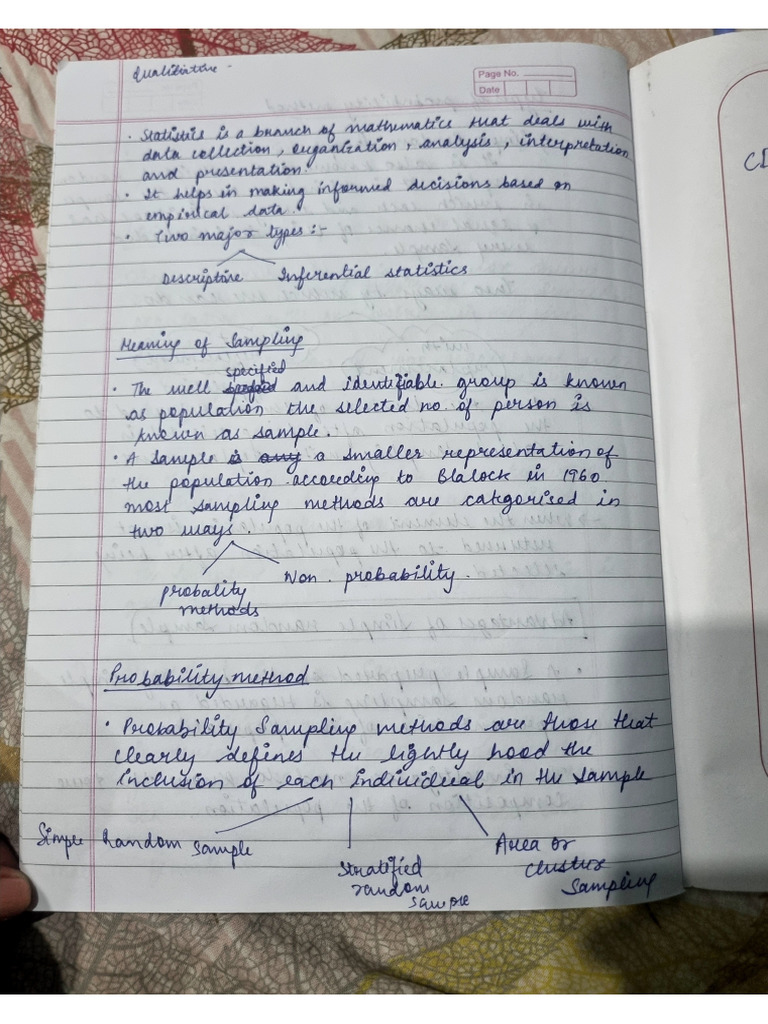 Qualitative -
Page No.
Date
• Statistics is a branch of mathematics that deals with
data collection, organization, analysis, interpretation
and presentation.
• It helps in making informed decisions based on
empirical data.
• Two major types :-
Descriptive Inferential statistics
Meaning of Sampling
specified
• The well and identifiable group is known
as population the selected no. of person is
known as sample.
• A sample is any a smaller representation of
the population according to Blalock in 1960
most sampling methods are categorised in
two ways.
probality Non. probability.
methods
Probability method
• Probability Sampling methods are those that
clearly defines the lightly hood the
inclusion of each individual in the sample
Simple Random Sample
Area or
Stratified
cluster
random
Sampling
sample
CI